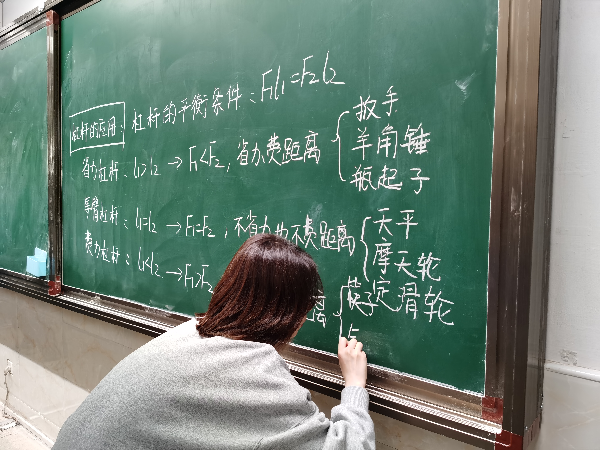 杠杆的应用：杠杆的平衡条件：F₁l₁=F₂l₂
省力杠杆：l₁>l₂→F₁<F₂，省力费距离
扳手
羊角锤
瓶起子
等臂杠杆：l₁=l₂→F₁=F₂，不省力也不费距离
天平
摩天轮
定滑轮
费力杠杆：l₁<l₂→F₁>F₂
离
筷子